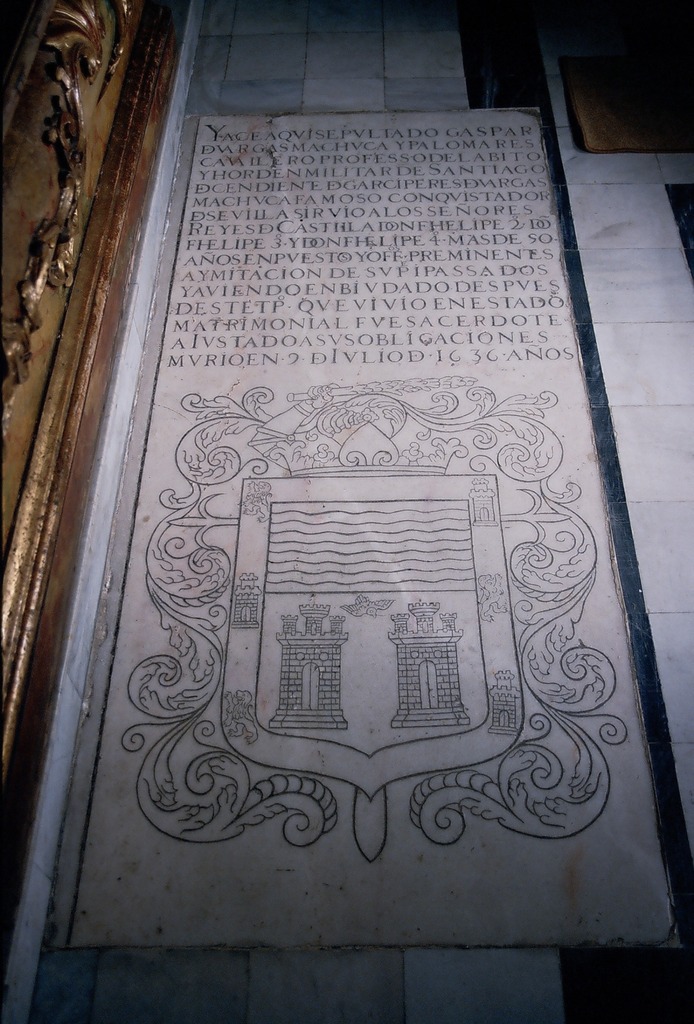 YACE AQVI SEPVLIADO GASPAR
DVARGAS MACHVCA Y PALOMARES
CAVALLERO PROFESSO DEL ABITO
Y HORDEN MILITAR DE SANTIAGO
DCENDIENTE D GARCI PERES D VARGAS
MACHVCA FAMOSO CONQVISTADOR
D SEVILLA SIRVIO A LOS SEÑORES
REYES D CASTILLA DON FHELIPE 2· DO
FHELIPE 3· Y DON FHELIPE 4· MAS DE 50·
AÑOS EN PVESTO Y OFF. PREMINENTES
A YMITACION DE SV PI PASSADOS
Y AVIENDO ENBIVDADO DESPVES
DESTE TP.O QVE VIVIO EN ESTADO
MATRIMONIAL FVE SACERDOTE
AIVSTADO A SVS OBLIGACIONES
MVRIO EN 9· D IVLIO D· 1636· AÑOS